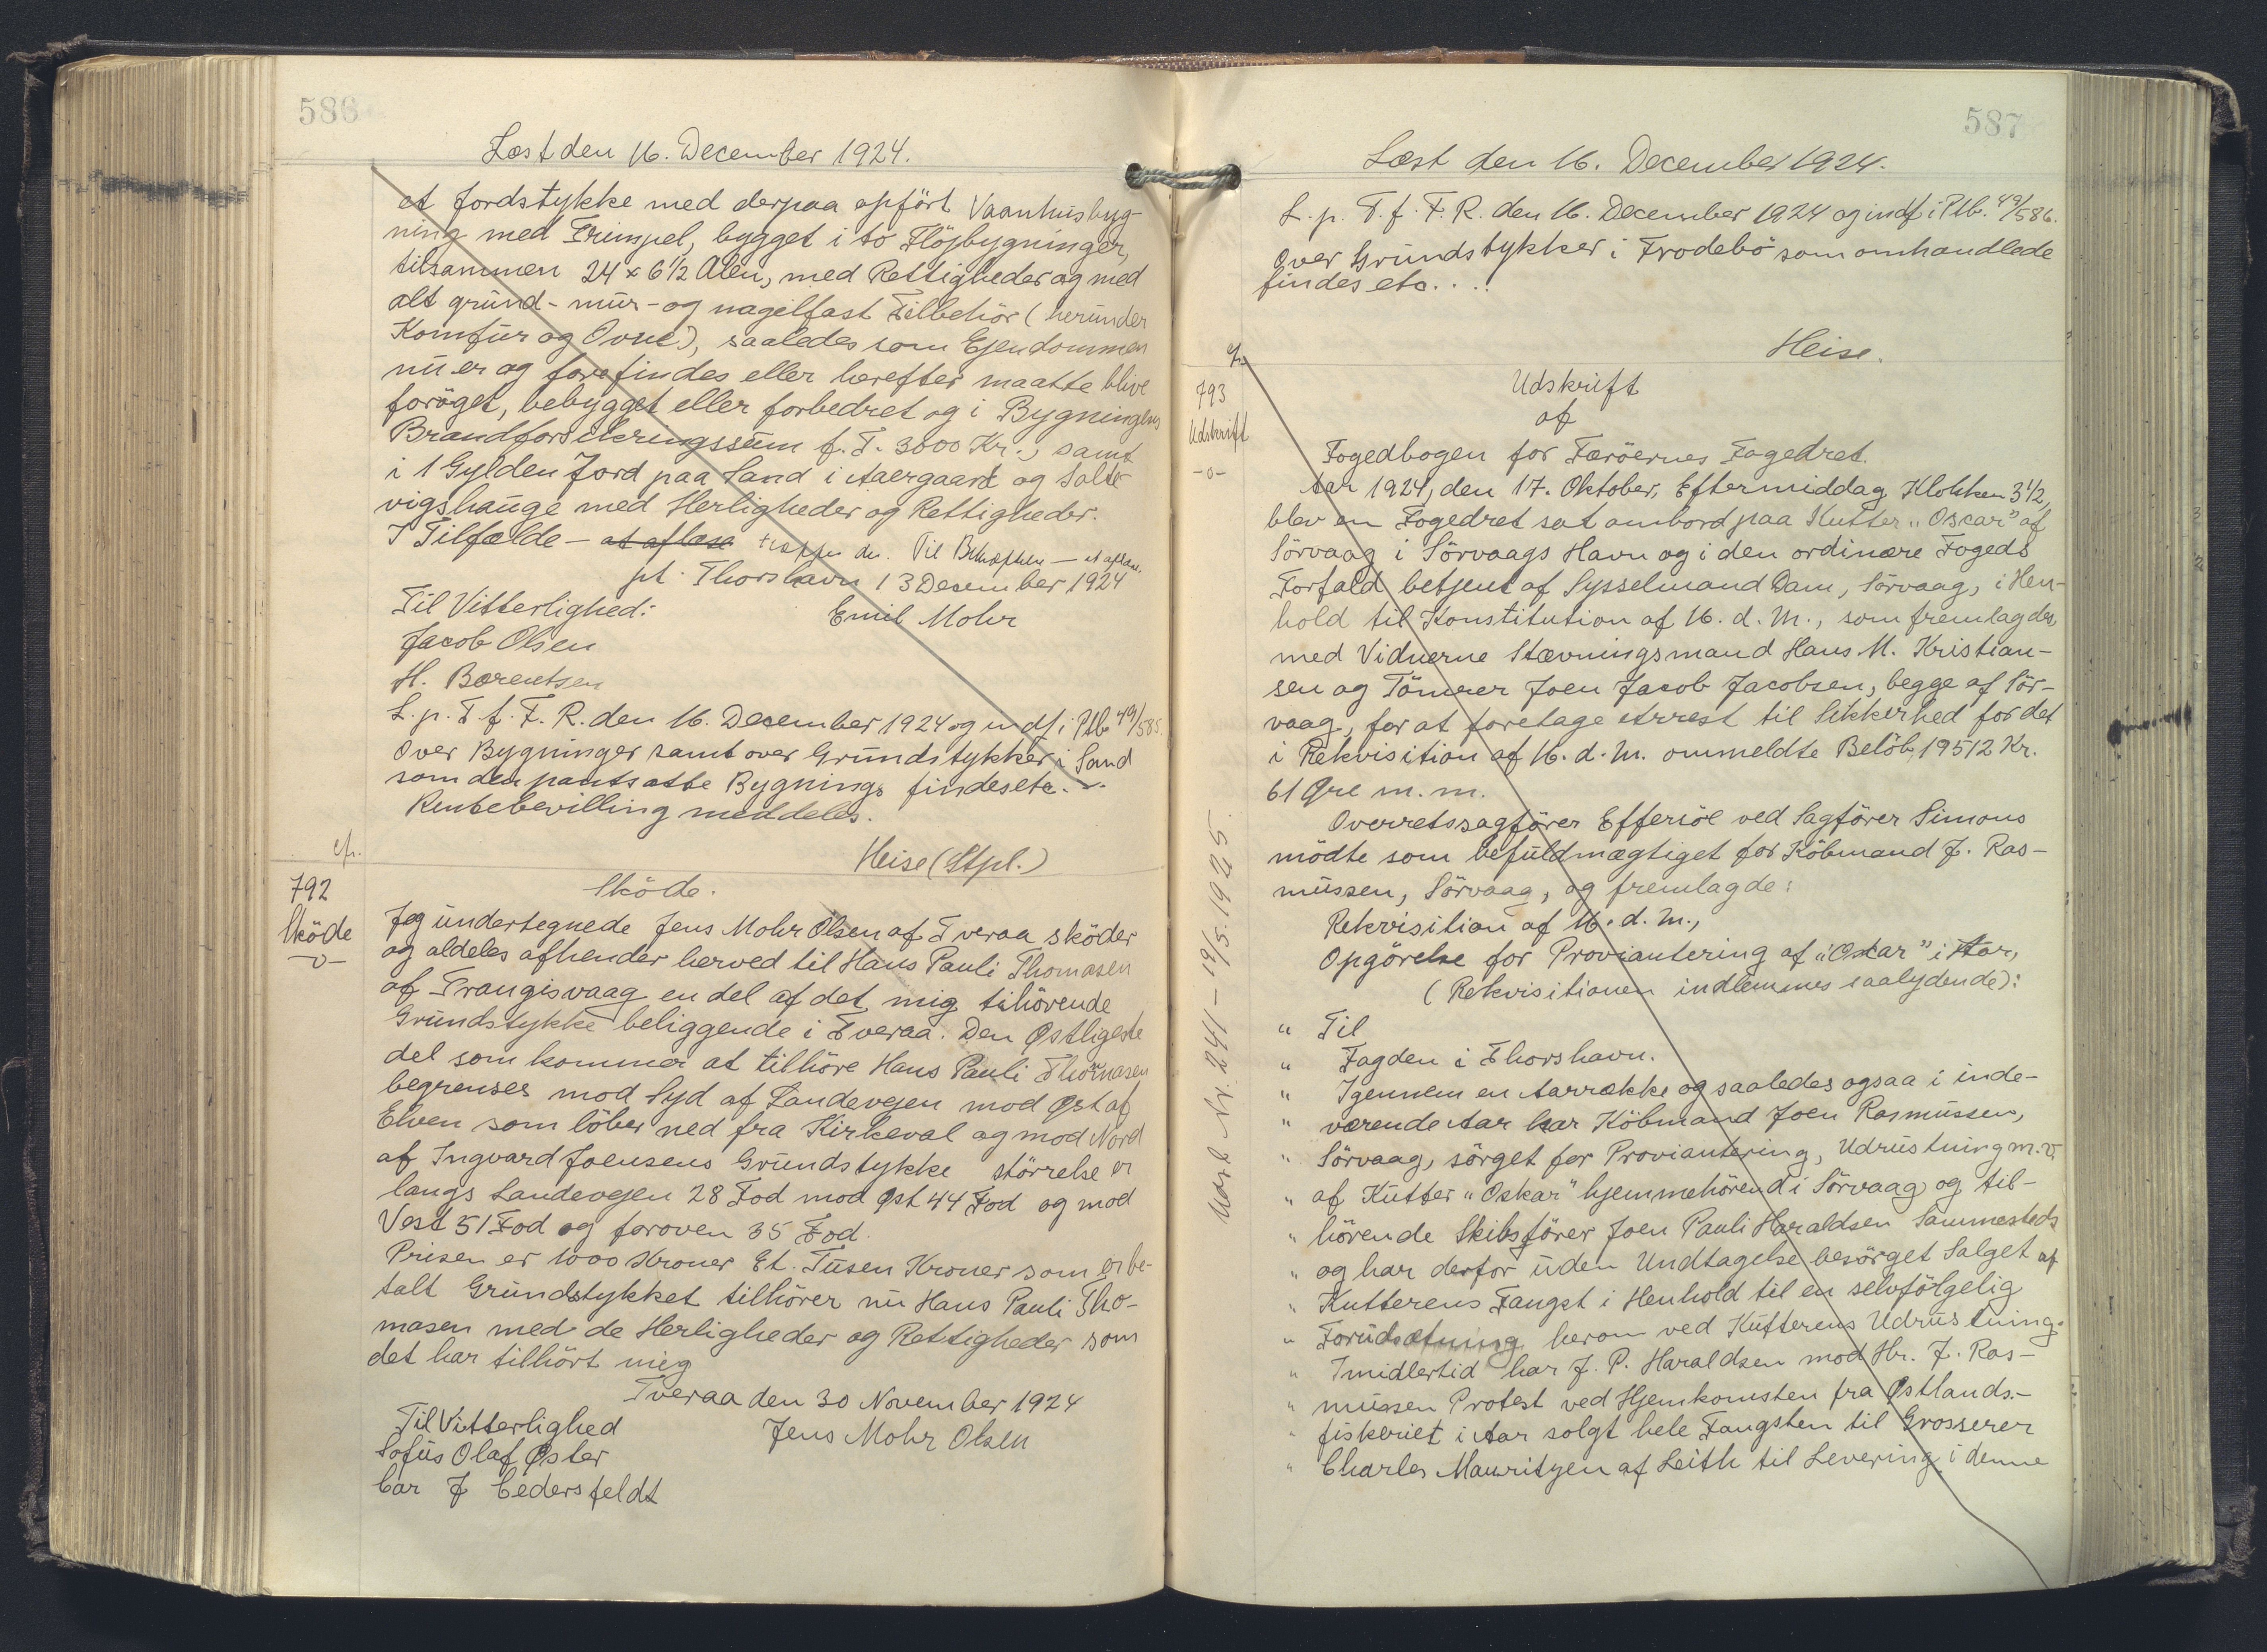 586
Læst den 16. December 1924.
et Jordstykke med derpaa opført Vaanhusbyg-
ning med Trempel, bygget i to Fløjbygninger,
tilsammen 24 x 6 1/2 Alen, med Rettigheder og med
alt grund- mur- og nagelfast Tilbehör (herunder
Komfur og Ovne), saaledes som Ejendommen
nu er og forefindes eller herefter maatte blive
forøget, bebygget eller forbedret og i Bygningens
Brandforsikringssum f. T. 3000 Kr., samt
i 1 Gylden Jord paa Sand i Aaergaard og Salte-
vigshauge med Herligheder og Rettigheder.
I Tilfælde - at aflæse
pt. Thorshavn 13 December 1924
Til Vitterlighed: Emil Mohr
Jacob Olsen
H. Berentsen
L. p. T. f. F. R. den 16. December 1924 og indf. i Ptb. 49/585.
Over Bygninger samt over Grundstykker i Sand
som den pantsatte Bygnings findes etc...
Rentebevilling meddeles.
Heise (Stpl.)
cfr.
792
Sköde
-o-
Sköde.
Jeg undertegnede Jens Mohr Olsen af Tveraa sköder
og aldeles afhender herved til Hans Pauli Thomasen
af Trangisvaag en del af det mig tihörende
Grundstykke beliggende i Tveraa. Den Østligeste
del som kommer at tilhöre Hans Pauli Thomasen
begrenses mod Syd af Landevejen mod Øst af
Elven som löber ned fra Kirkeval og mod Nord
af Ingvard Joensens Grundstykke störrelse er
langs Landevejen 28 Fod mod Øst 44 Fod og mod
Vest 51 Fod og foroven 35 Fod.
Prisen er 1000 Kroner Et. Tusen Kroner som er be-
talt Grundstykket tilhører nu Hans Pauli Tho-
masen med de Herligheder og Rettigheder som
det har tilhört mig
Tveraa den 30 November 1924
Til Vitterlighed Jens Mohr Olsen
Sofus Olaf Øster
Car J Cedersfeldt
587
Læst den 16. December 1924.
L. p. T. f. F. R. den 16. December 1924 og indf i Ptb. 49/586.
Over Grundstykker i Frodebö som omhandlede
findes etc....
Heise.
cfr.
793
Udskrift
-o-
Udskrift
af
Fogedbogen for Færöernes Fogedret.
Aar 1924, den 17. Oktober, Eftermiddag Klokken 3 1/2,
blev en Fogedret sat ombord paa Kutter "Oscar" af
Sörvaag i Sörvaags Havn og i den ordinære Fogeds
Forfald betjent af Sysselmand Dam, Sörvaag, i Hen-
hold til Konstitution af 16. d. M., som fremlagdes,
med Vidnerne Stævningsmand Hans M. Kristian-
sen og Tömrer Joen Jacob Jacobsen, begge af Sör-
vaag, for at foretage Arrest til Sikkerhed for det
i Rekvisition af 16. d. M. ommeldte Belöb, 19512 Kr.
61 Øre m. m.
Overretssagförer Effersöe ved Sagförer Simons
mödte som befuldmægtiget for Köbmand J. Ras-
mussen, Sörvaag, og fremlagde:
Rekvisition af 16. d. M.,
Opgörelse for Proviantering af "Oskar" i Aar,
(Rekvisitionen indlemmes saalydende):
" Til
" Fogden i Thorshavn.
" Igennem en Aarrække og saaledes ogsaa i inde-
" værende Aar har Köbmand Joen Rasmussen,
" Sörvaag, sörget for Proviantering, Udrustning m. v.
" af Kutter "Oskar" hjemmehörend i Sörvaag og til-
" hörende Skibsförer Joen Pauli Haraldsen Sammesteds
" og har derfor uden Undtagelse besörget Salget af
" Kutterens Fangst i Henhold til en selvfölgelig
" Forudsætning herom ved Kutterens Udrustning.
" Imidlertid har J. P. Haraldsen mod Hr. J. Ras-
" mussen Protest ved Hjemkomsten fra Østlands-
" fiskeriet i Aar solgt hele Fangsten til Grosserer
" Charles Mauritzen af Leith til Levering i denne
Nr. 241 - 19/5. 1925.